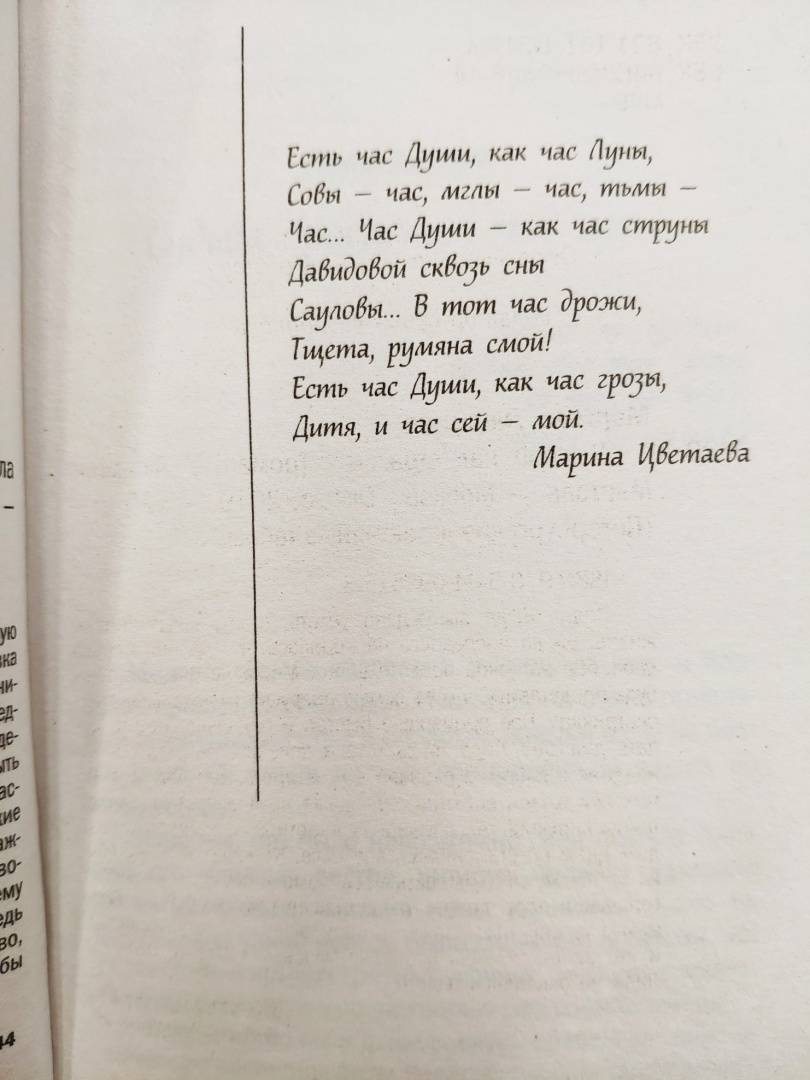 Есть час Души, как час Луны,
Совы – час, мглы – час, тьмы –
Час... Час Души – как час струны
Давидовой сквозь сны
Сауловы... В тот час дрожи,
Тщета, румяна смой!
Есть час Души, как час грозы,
Дитя, и час сей – мой.
Марина Цветаева
ла
–
ую
вка
чи-
ед-
де-
ыть
ас-
кие
аж-
во-
ему
едь
во,
бы
44